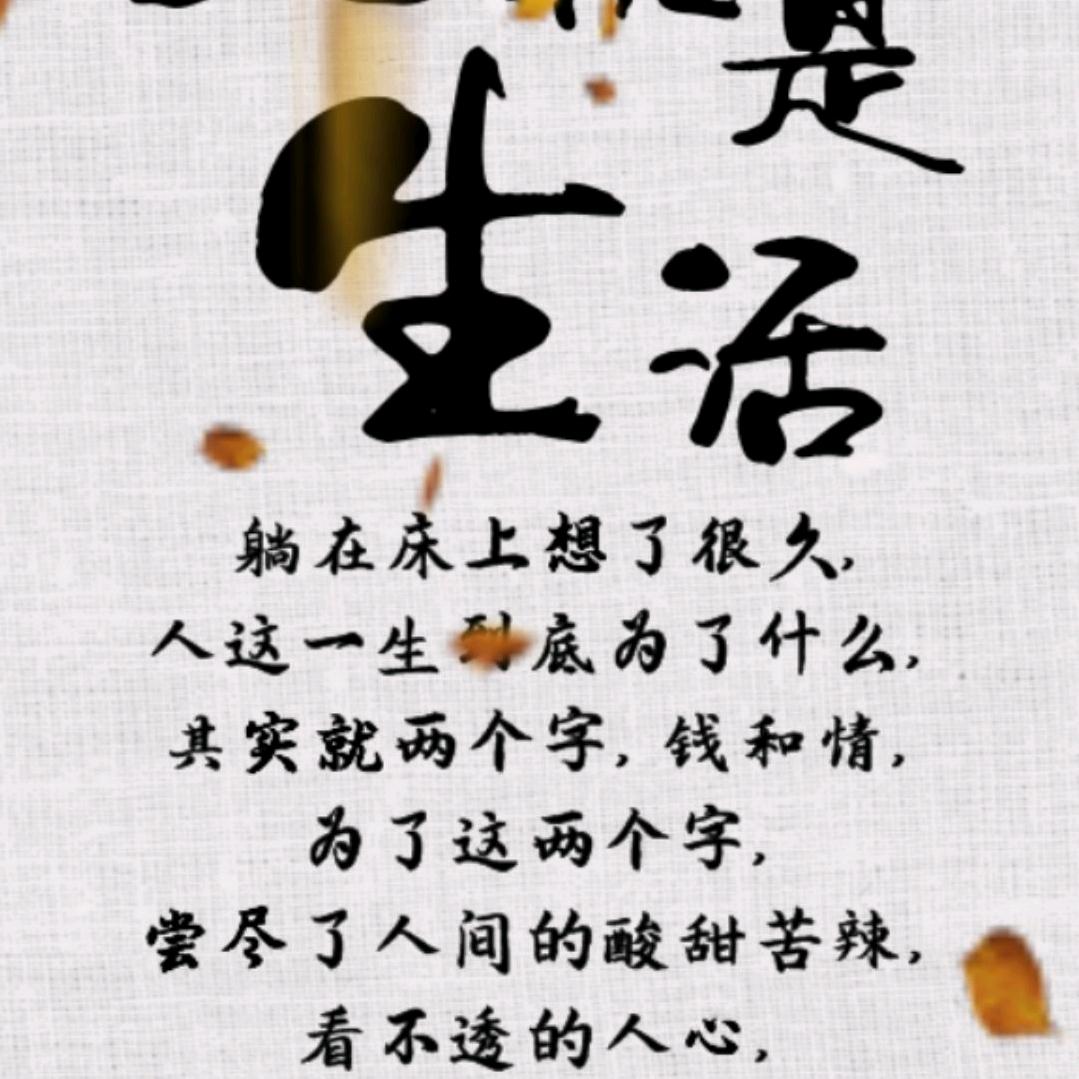 是
生活
躺在床上想了很久,
人这一生到底为了什么,
其实就两个字,钱和情,
为了这两个字,
尝尽了人间的酸甜苦辣,
看不透的人心,